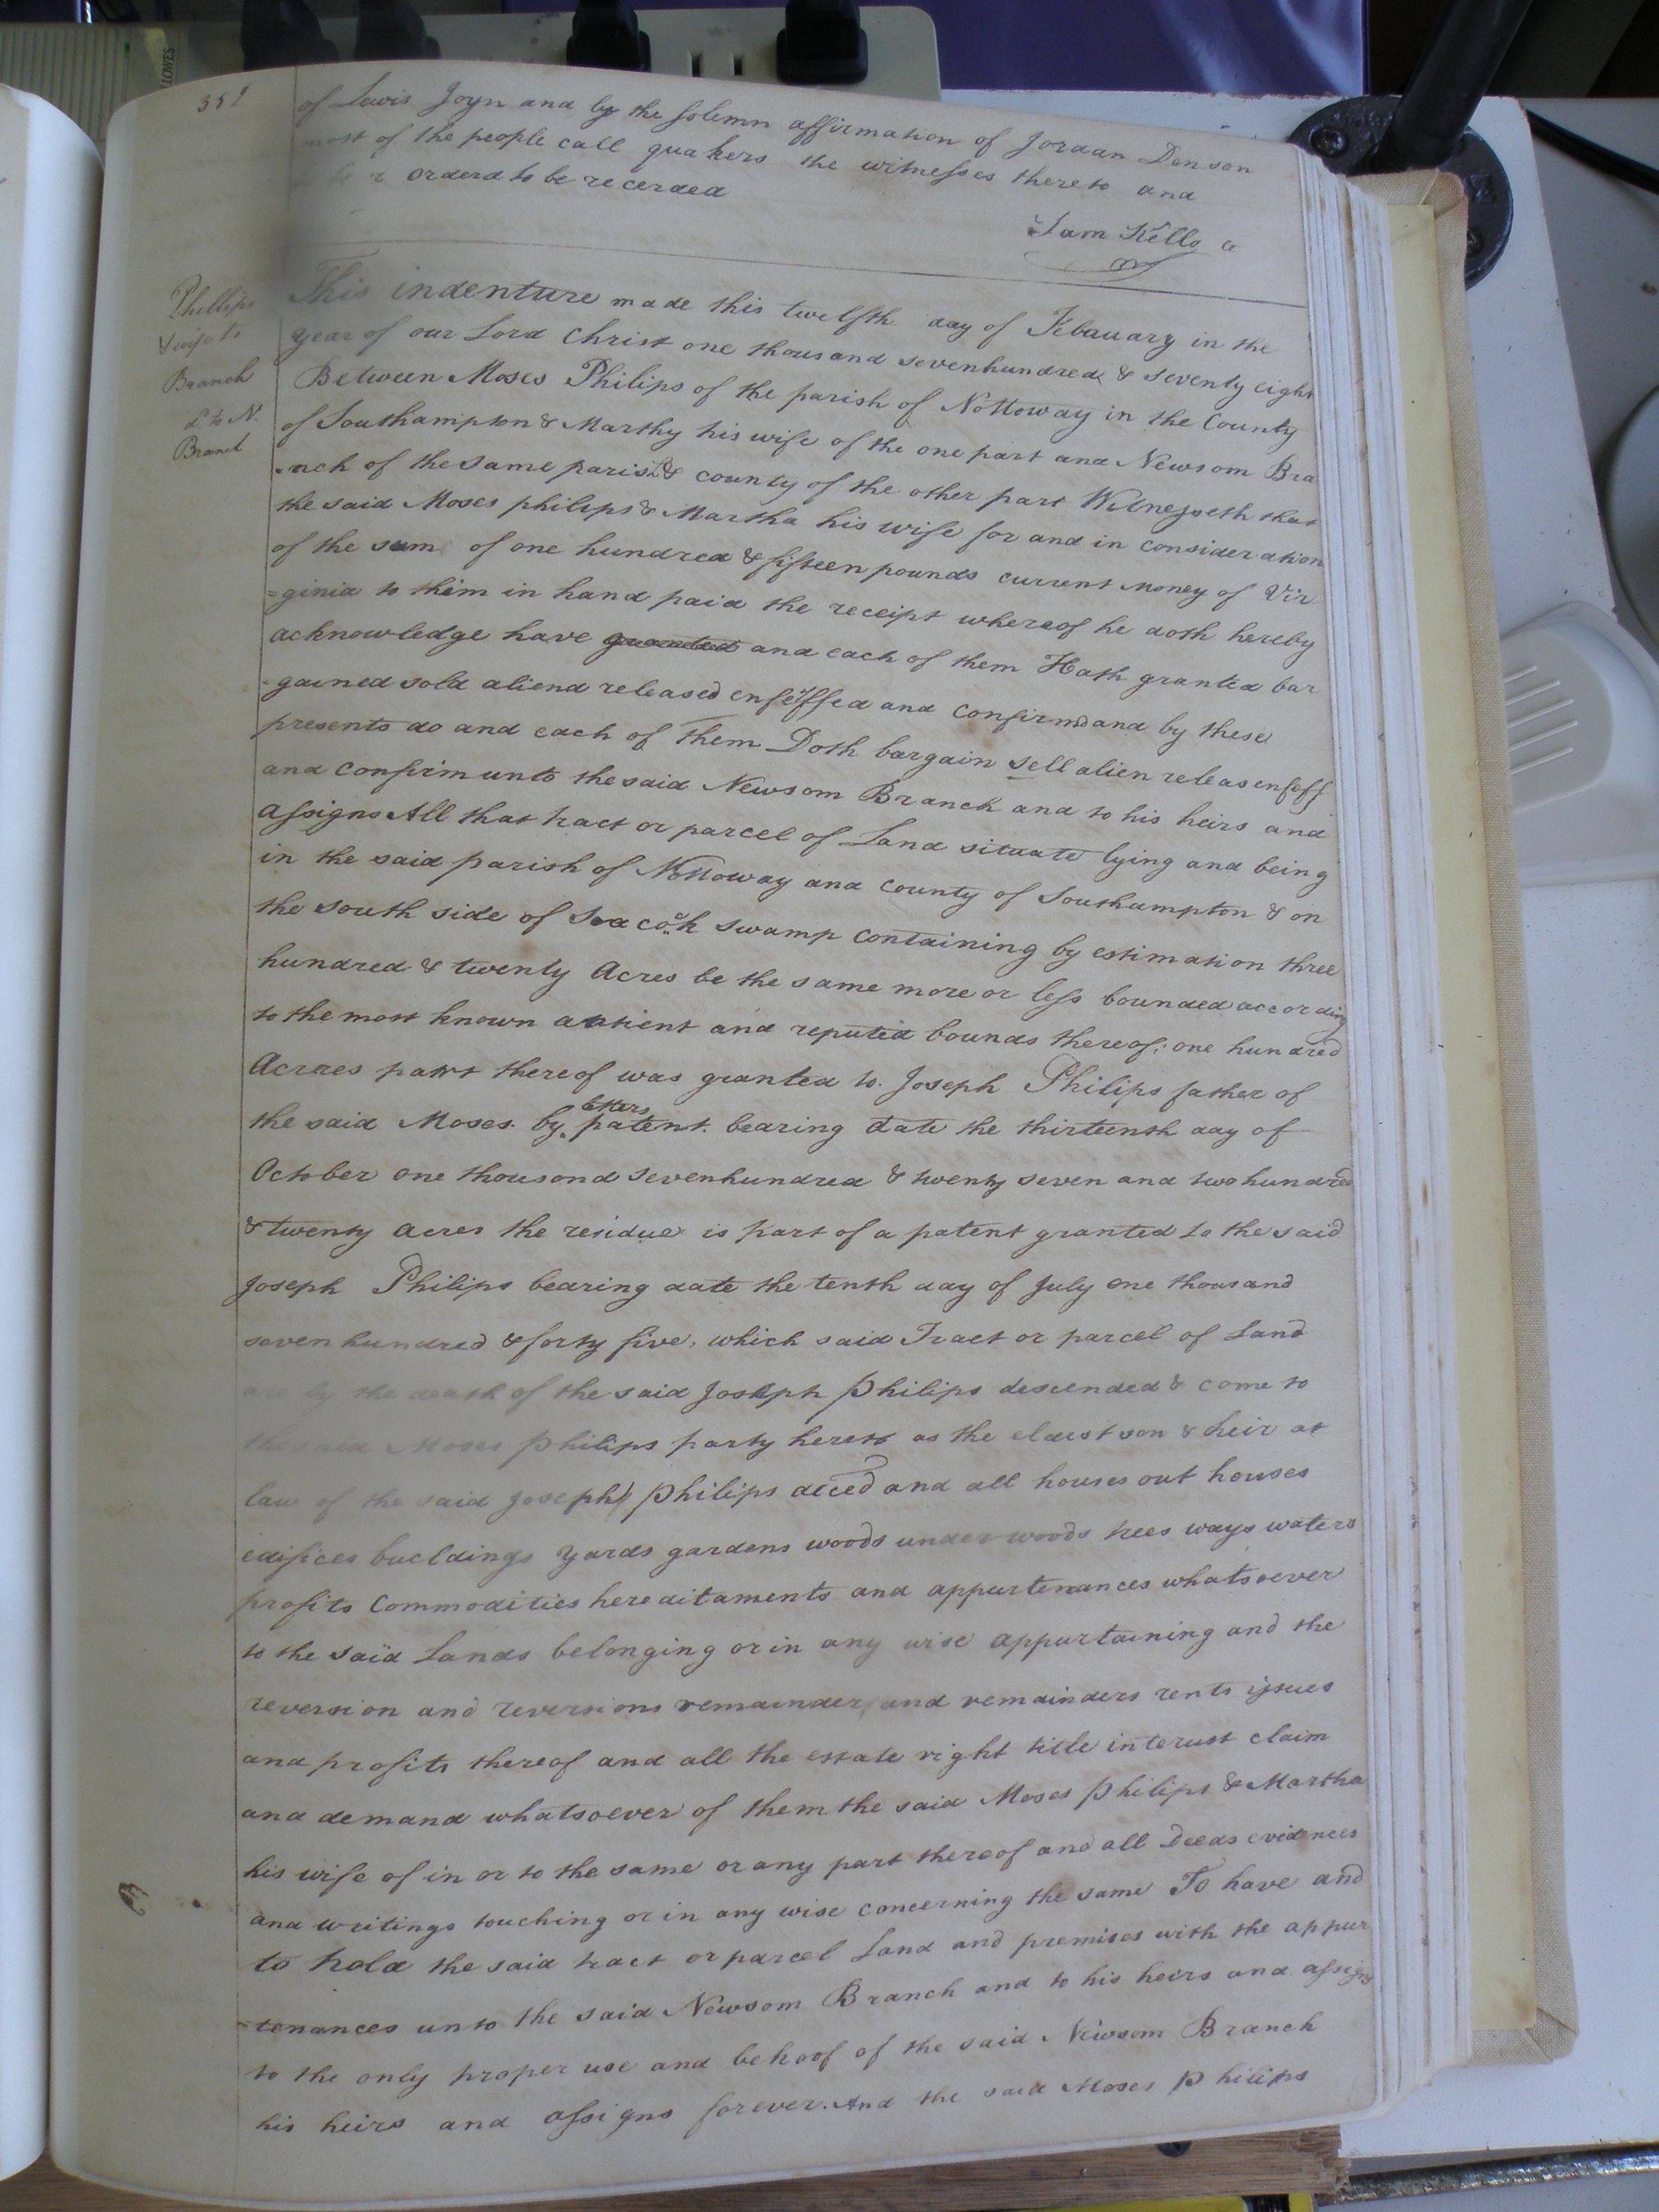 352
of Lewis Joyn and by the solemn affirmation of Jordan Denson
most of the people call quakers the witnesses thereto and
orderd to be recerded
Sam Kello
Phillips
& wife to
Branch
d. to N.
Branch
This indenture made this twelfth day of Febauary in the
year of our Lord Christ one thousand sevenhundred & seventy eight
Between Moses Philips of the parish of Nottoway in the County
of Southampton & Marthy his wife of the one part and Newsom Bra
-nch of the same parish & county of the other part Witnesseth that
the said Moses philips & Martha his wife for and in consideration
of the sum of one hundred & fifteen pounds current money of Vir
=ginia to them in hand paid the receipt whereof he doth hereby
acknowledge have granted and each of them Hath granted bar
-gained sold aliend released enfeoffed and confirmd and by these
presents do and each of them Doth bargain sell alien releas enfeff
and confirm unto the said Newsom Branch and to his heirs and
assigns All that tract or parcel of Land situate lying and being
in the said parish of Nottoway and county of Southampton & on
the south side of Seacock swamp containing by estimation three
hundred & twenty Acres be the same more or less bounded according
to the most known antient and reputed bounds thereof; one hundred
Acraes part thereof was granted to Joseph Philips father of
the said Moses by letters patent bearing date the thirteenth day of
October one thousond sevenhundred & twenty seven and two hundred
& twenty acres the residue is part of a patent granted to the said
Joseph Philips bearing date the tenth day of July one thousand
seven hundred & forty five, which said Tract or parcel of Land
are by the death of the said Joseph Philips descended & come to
the said Moses philips party hereto as the eldest son & heir at
law of the said Joseph philips deced and all houses out houses
edifices buildings yards gardens woods under woods trees ways waters
profits commodities hereditaments and appurtenances whatsoever
to the said Lands belonging or in any wise appurtaining and the
reversion and reversions remainder and remainders rents issues
and profits thereof and all the estate right title interust claim
and demand whatsoever of them the said Moses philips & Martha
his wife of in or to the same or any part thereof and all Deeds evidences
and writings touching or in any wise concerning the same To have and
to hold the said tract or parcel Land and premises with the appur
-tenances unto the said Newsom Branch and to his heirs and assigns
to the only proper use and behoof of the said Newsom Branch
his heirs and assigns forever. And the said Moses philips